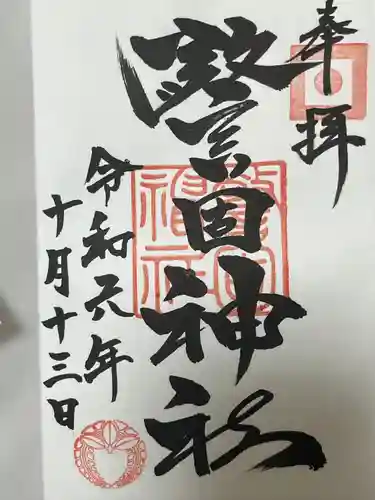 奉拝
警固神社
令和元年
十月十三日